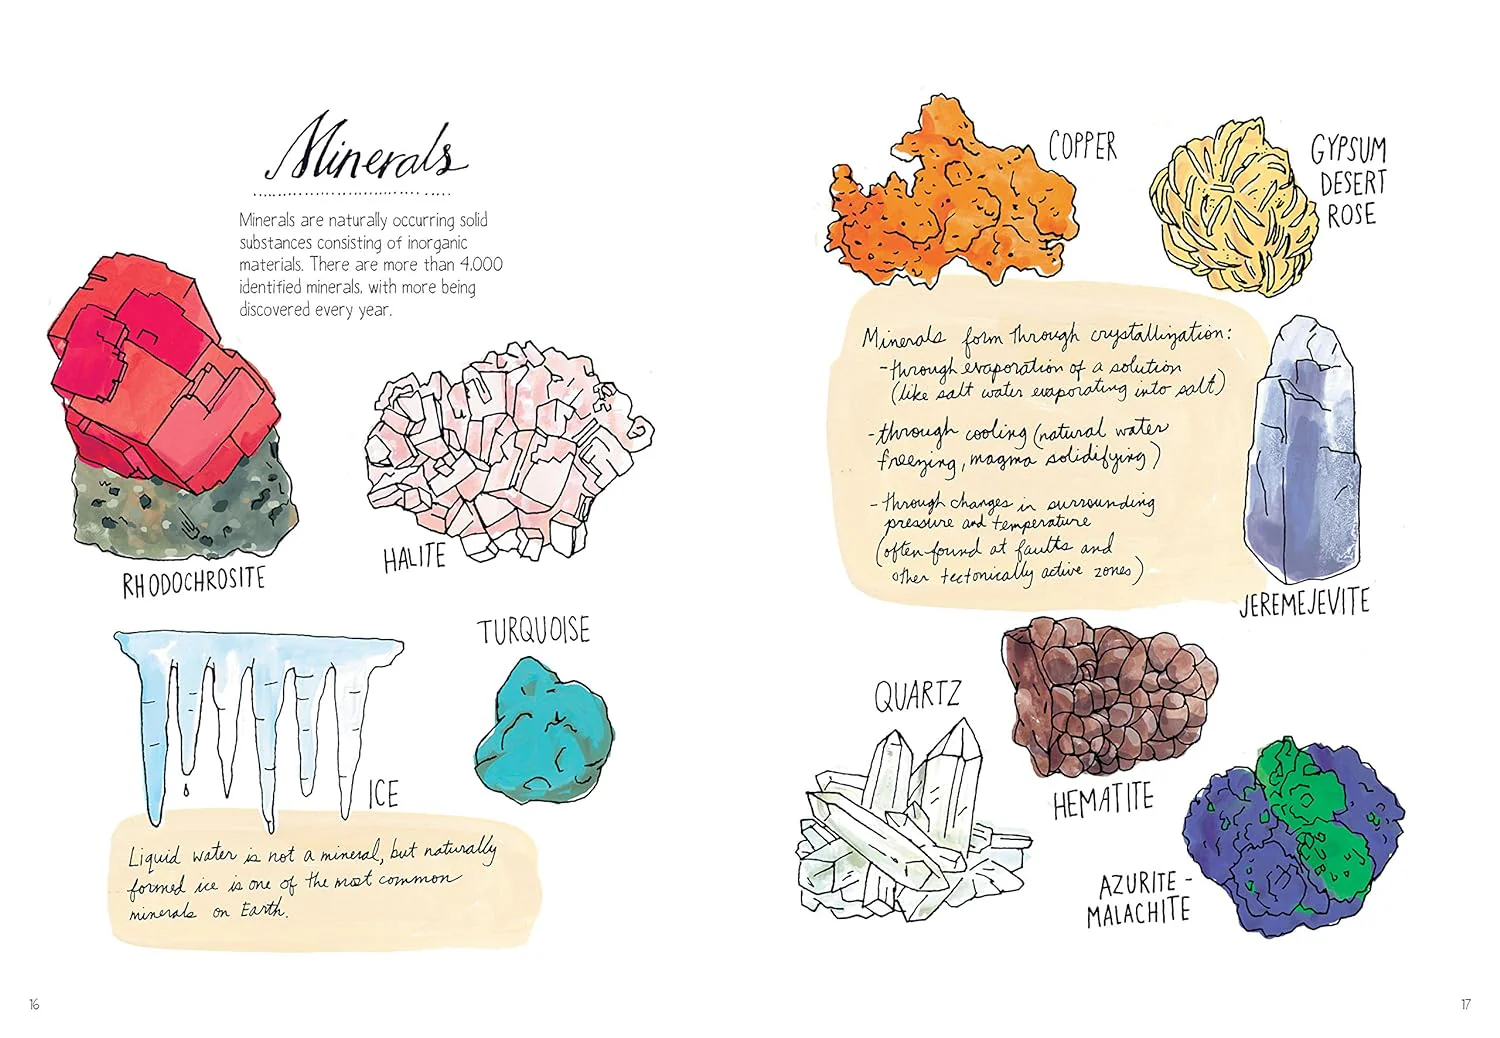 Minerals
Minerals are naturally occurring solid
substances consisting of inorganic
materials. There are more than 4,000
identified minerals, with more being
discovered every year.
RHODOCHROSITE
HALITE
ICE
TURQUOISE
Liquid water is not a mineral, but naturally
formed ice is one of the most common
minerals on Earth.
16
COPPER
GYPSUM
DESERT
ROSE
Minerals form through crystallization:
-through evaporation of a solution
(like salt water evaporating into salt)
-through cooling (natural water
freezing, magma solidifying)
-through changes in surrounding
pressure and temperature
(often found at faults and
other tectonically active zones)
JEREMEJEVITE
QUARTZ
HEMATITE
AZURITE-
MALACHITE
17